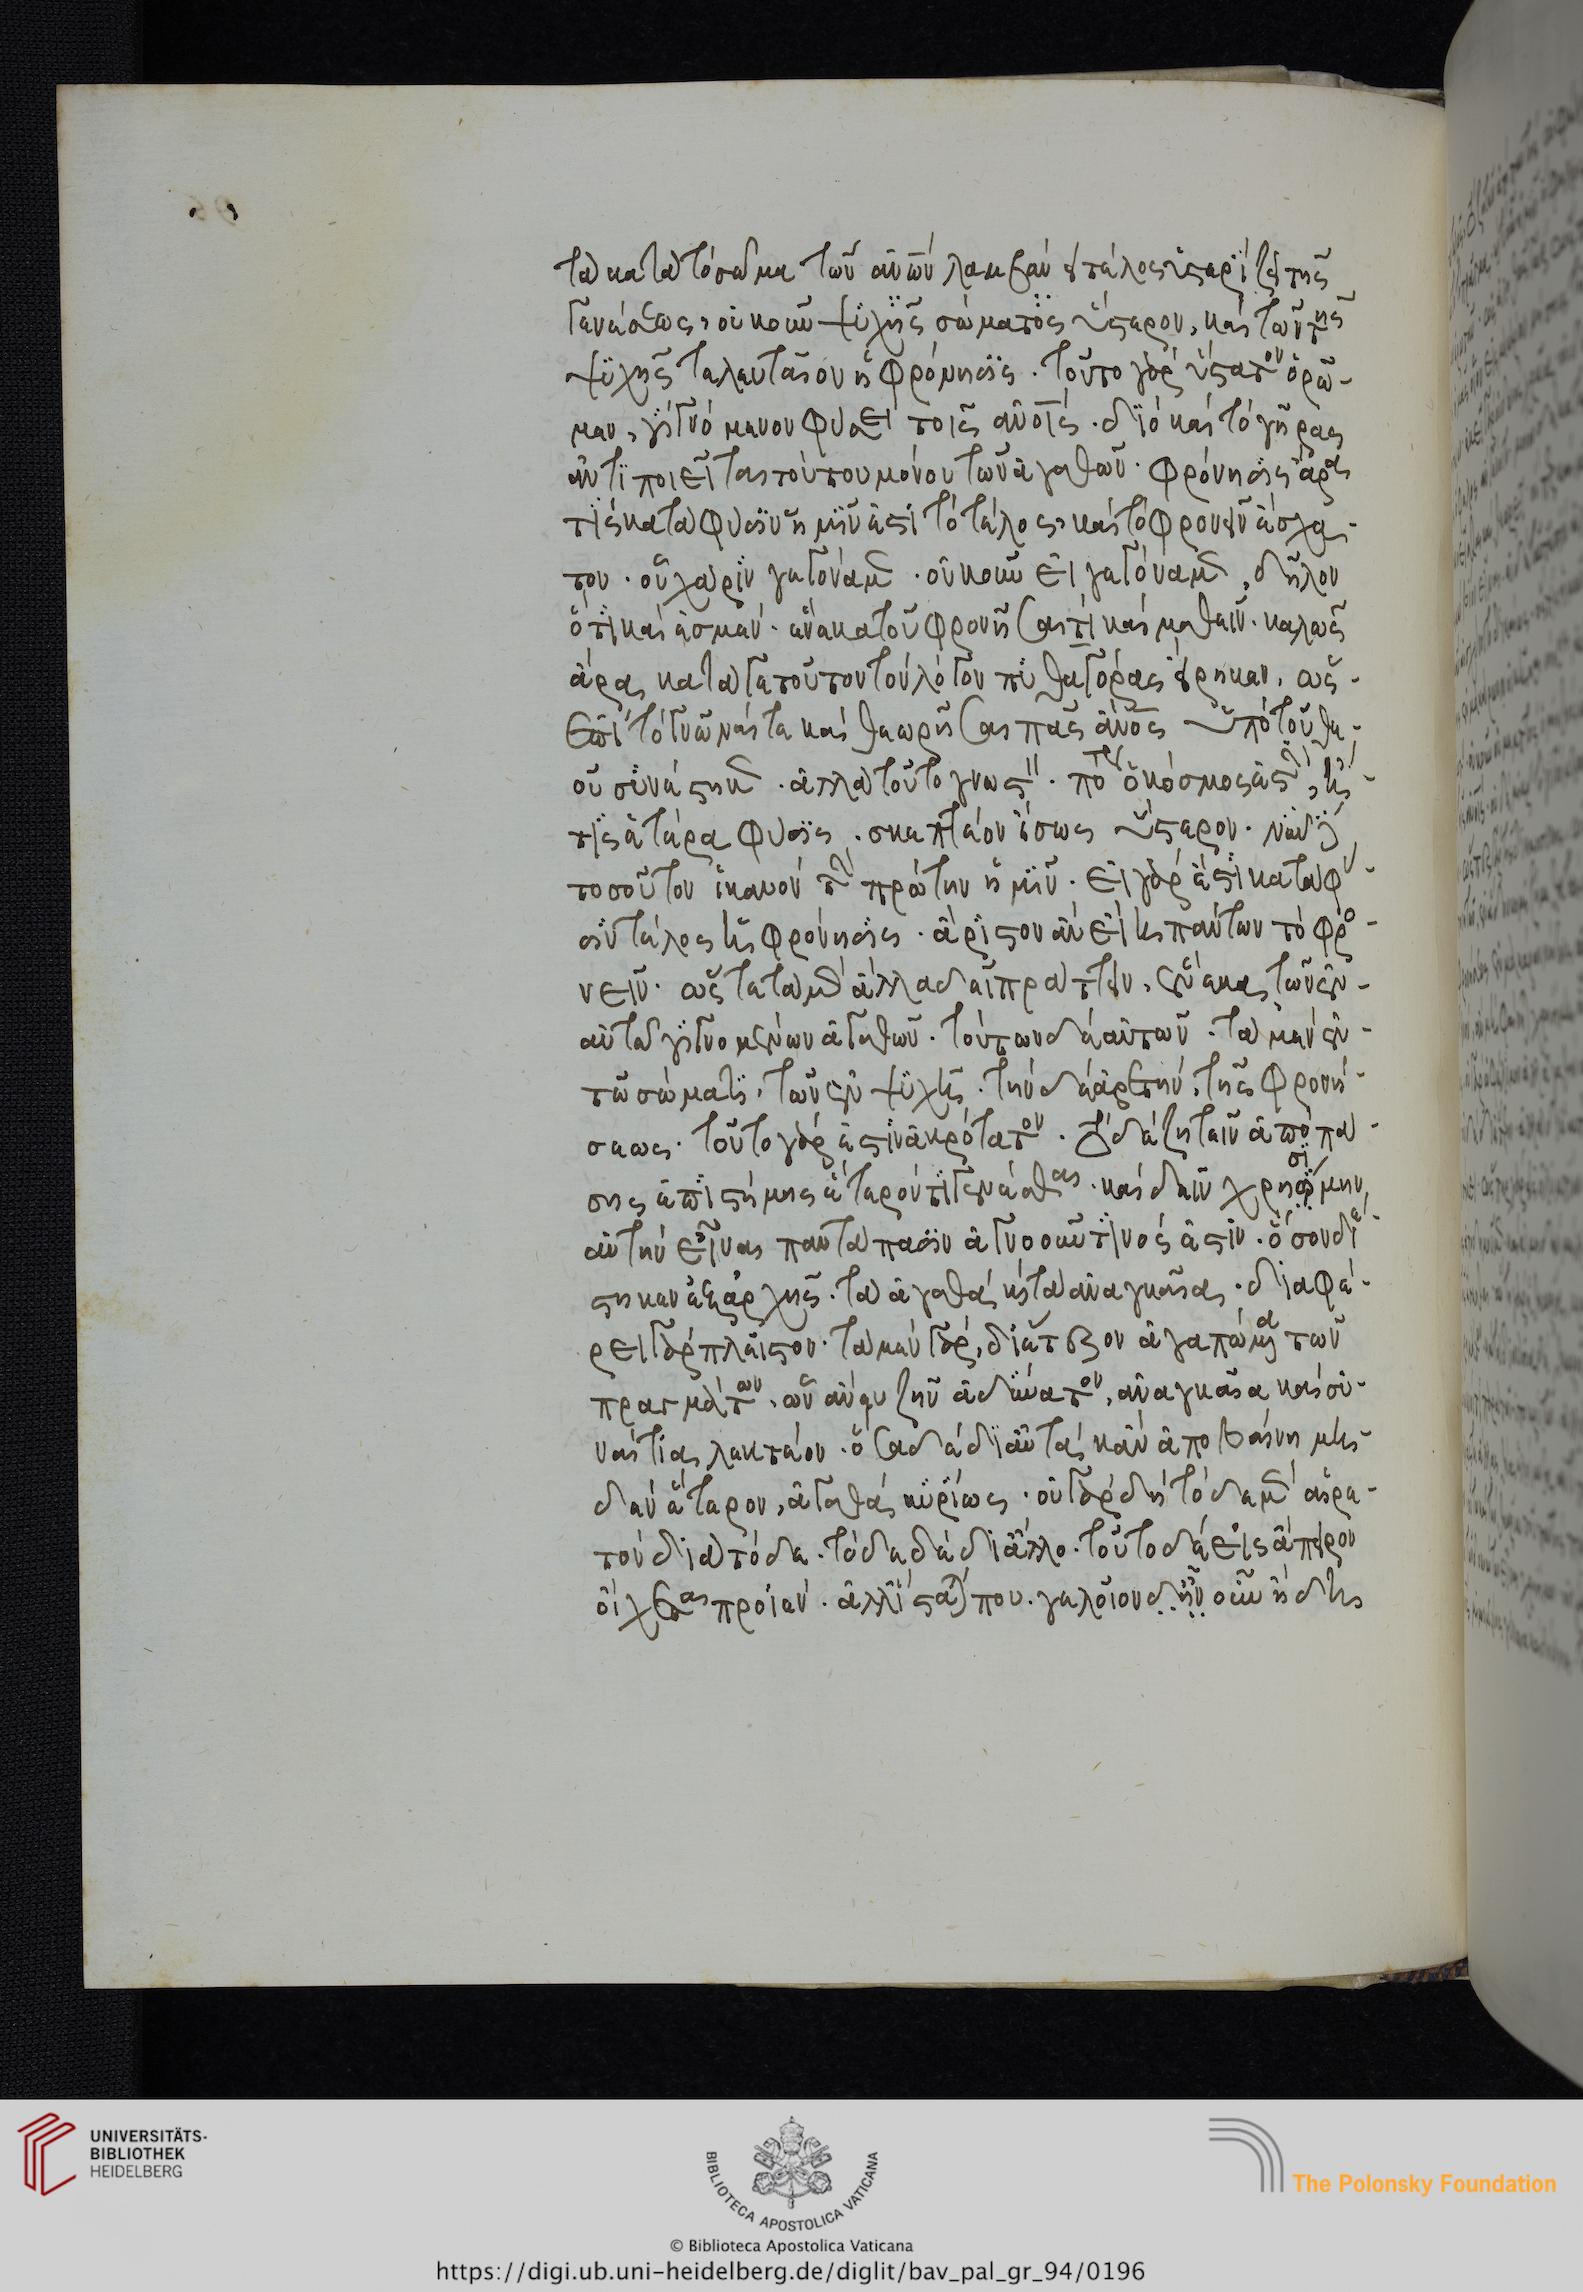 τα κατὰ τὸ σῶμα τῶν ἀν̅ων λαμβάνει τέλος ὑστερίζει τῆς
γενέσεως, οὐκοῦν ψυχὴ σώματος ὕστερον, καὶ τῶν τῆς
ψυχῆς τελευταῖον ἡ φρόνησις. τοῦτο γὰρ ὕστατον ὁρῶ-
μεν, γιγνόμενον φύσει τοῖς ἀν̅οις. διὸ καὶ τὸ γῆρας
ἀντιποιεῖται τούτου μόνου τῶν ἀγαθῶν. φρόνησις ἄρα
τις κατὰ φύσιν ἡμῖν ἐστι τὸ τέλος, καὶ τὸ φρονεῖν ἔσχα-
τον. οὗ χάριν γεγόναμεν. οὐκοῦν εἰ γεγόναμεν, δῆλον
ὅτι καὶ ἐσμὲν. ἕνεκα τοῦ φρονῆσαι τι καὶ μαθεῖν. καλῶς
ἄρα κατά γε τοῦτον τὸν λόγον πυθαγόρας εἴρηκεν, ὡς
ἐπὶ τὸ γνῶναί τε καὶ θεωρῆσαι πᾶς ἄν̅ος ὑπὸ τοῦ θε-
οῦ συνέστηκεν. ἀλλὰ τοῦτο γνωστὸν. πότερον ὁ κόσμος ἐστὶν, ἤ
τις ἑτέρα φύσις. σκεπτέον ἴσως ὕστερον. νῦν δὲ
τοσοῦτον ἱκανὸν τὴν πρώτην ἡμῖν. εἰ γάρ ἐστι κατὰ φύ-
σιν τέλος ἡ φρόνησις. ἄριστον ἂν εἴη πάντων τὸ φρο-
νεῖν. ὥστε τὰ μὲν ἄλλα δεῖ πράττειν, ἕνεκα τῶν ἐν
αὐτῷ γιγνομένων ἀγαθῶν. τούτων δὲ αὐτῶν. τὰ μὲν ἐν
τῷ σώματι, τῶν ἐν ψυχῇ. τὴν δὲ ἀρετὴν, τῆς φρονή-
σεως. τοῦτο γάρ ἐστιν ἀκρότατον. τὸ δὲ ζητεῖν ἀπὸ πά-
σης ἐπιστήμης ἕτερόν τι γενέσθαι. καὶ δεῖν χρησίμην,
αὐτὴν εἶναι παντάπασιν ἀγνοοῦντινός ἐστιν. ὅσον διέ-
στηκεν ἐξ ἀρχῆς. τὰ ἀγαθὰ καὶ τὰ ἀναγκαῖα. διαφέ-
ρει γὰρ πλεῖστον. τὰ μὲν γὰρ, δι' ἕτερον ἀγαπώμενα τῶν
πραγμάτων. ὧν ἄνευ ζῆν ἀδύνατον, ἀναγκαῖα καὶ συ-
ναίτια λεκτέον. ὅσα δὲ δι' αὑτά, κἂν ἀποβαίνῃ μη-
δὲν ἕτερον, ἀγαθὰ κυρίως. οὐ γὰρ δὴ τόδε μὲν αἱρε-
τὸν διὰ τόδε. τόδε δὲ δι' ἄλλο. τοῦτο δὲ εἰς ἄπειρον
οἴχεται προϊέν. ἀλλ' ἵσταταί που. γελοῖον δὴν οὖν ἤδη
UNIVERSITÄTS-
BIBLIOTHEK
HEIDELBERG
BIBLIOTECA APOSTOLICA VATICANA
The Polonsky Foundation
© Biblioteca Apostolica Vaticana
https://digi.ub.uni-heidelberg.de/diglit/bav_pal_gr_94/0196